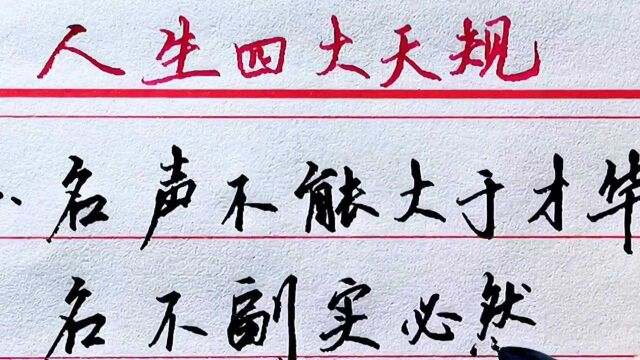 人生四大天规
名声不能大于才华
名不副实必然